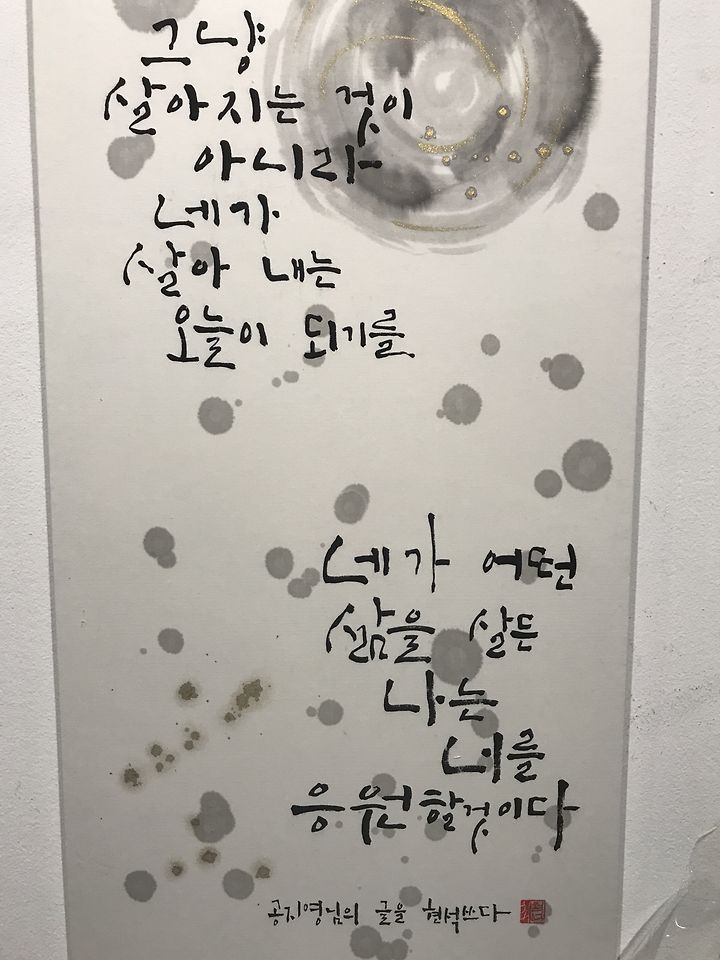 그냥
살아지는 것이
아니라
네가
살아 내는
오늘이 되기를
네가 어떤
삶을 살든
나는
너를
응원할것이다
공지영님의 글을 현석쓰다